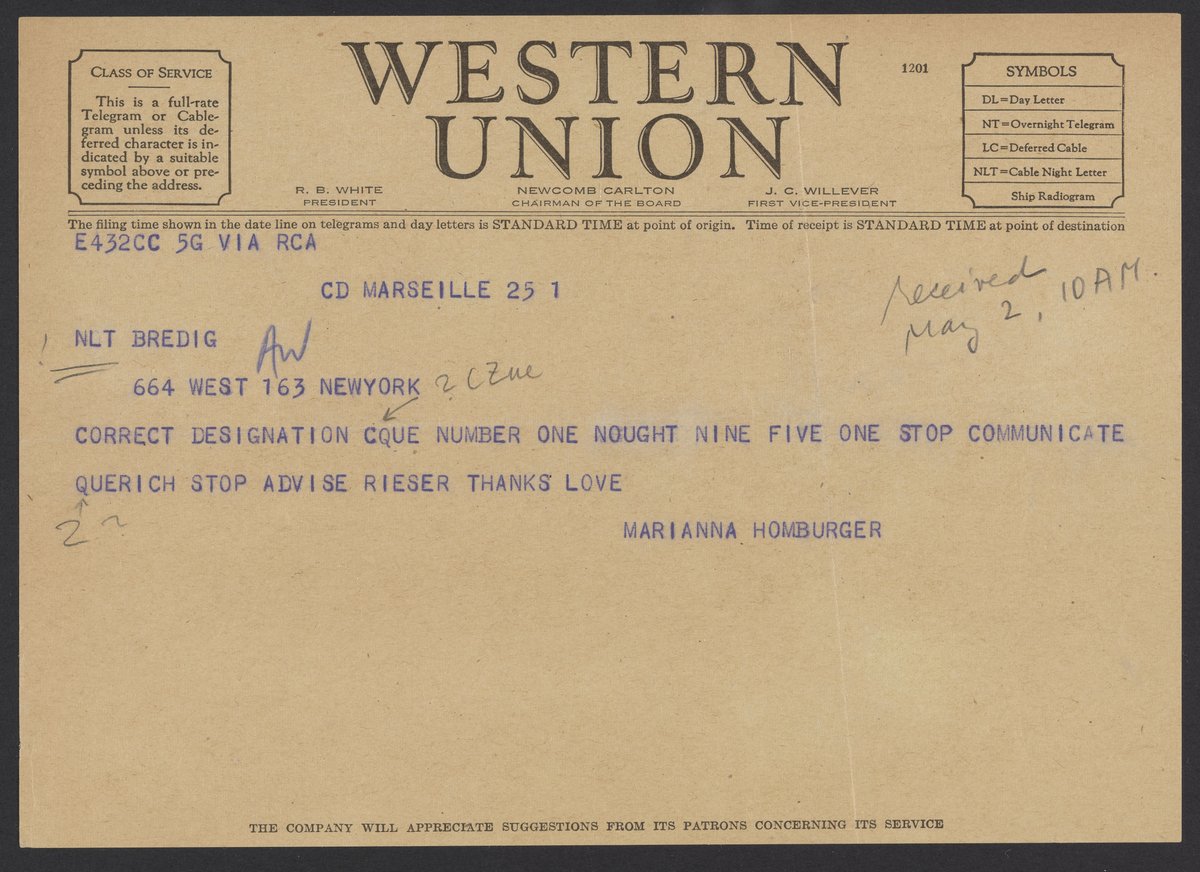 CLASS OF SERVICE
This is a full-rate
Telegram or Cable-
gram unless its de-
ferred character is in-
dicated by a suitable
symbol above or pre-
ceding the address.
WESTERN
UNION
1201
R. B. WHITE
PRESIDENT
NEWCOMB CARLTON
CHAIRMAN OF THE BOARD
J. C. WILLEVER
FIRST VICE-PRESIDENT
SYMBOLS
DL=Day Letter
NT=Overnight Telegram
LC=Deferred Cable
NLT=Cable Night Letter
Ship Radiogram
The filing time shown in the date line on telegrams and day letters is STANDARD TIME at point of origin. Time of receipt is STANDARD TIME at point of destination
E432CC 5G VIA RCA
CD MARSEILLE 25 1
received
May 2, 10 AM.
! NLT BREDIG
AW
664 WEST 163 NEWYORK
CORRECT DESIGNATION CQUE NUMBER ONE NOUGHT NINE FIVE ONE STOP COMMUNICATE
QUERICH STOP ADVISE RIESER THANKS LOVE
Z ?
MARIANNA HOMBURGER
THE COMPANY WILL APPRECIATE SUGGESTIONS FROM ITS PATRONS CONCERNING ITS SERVICE